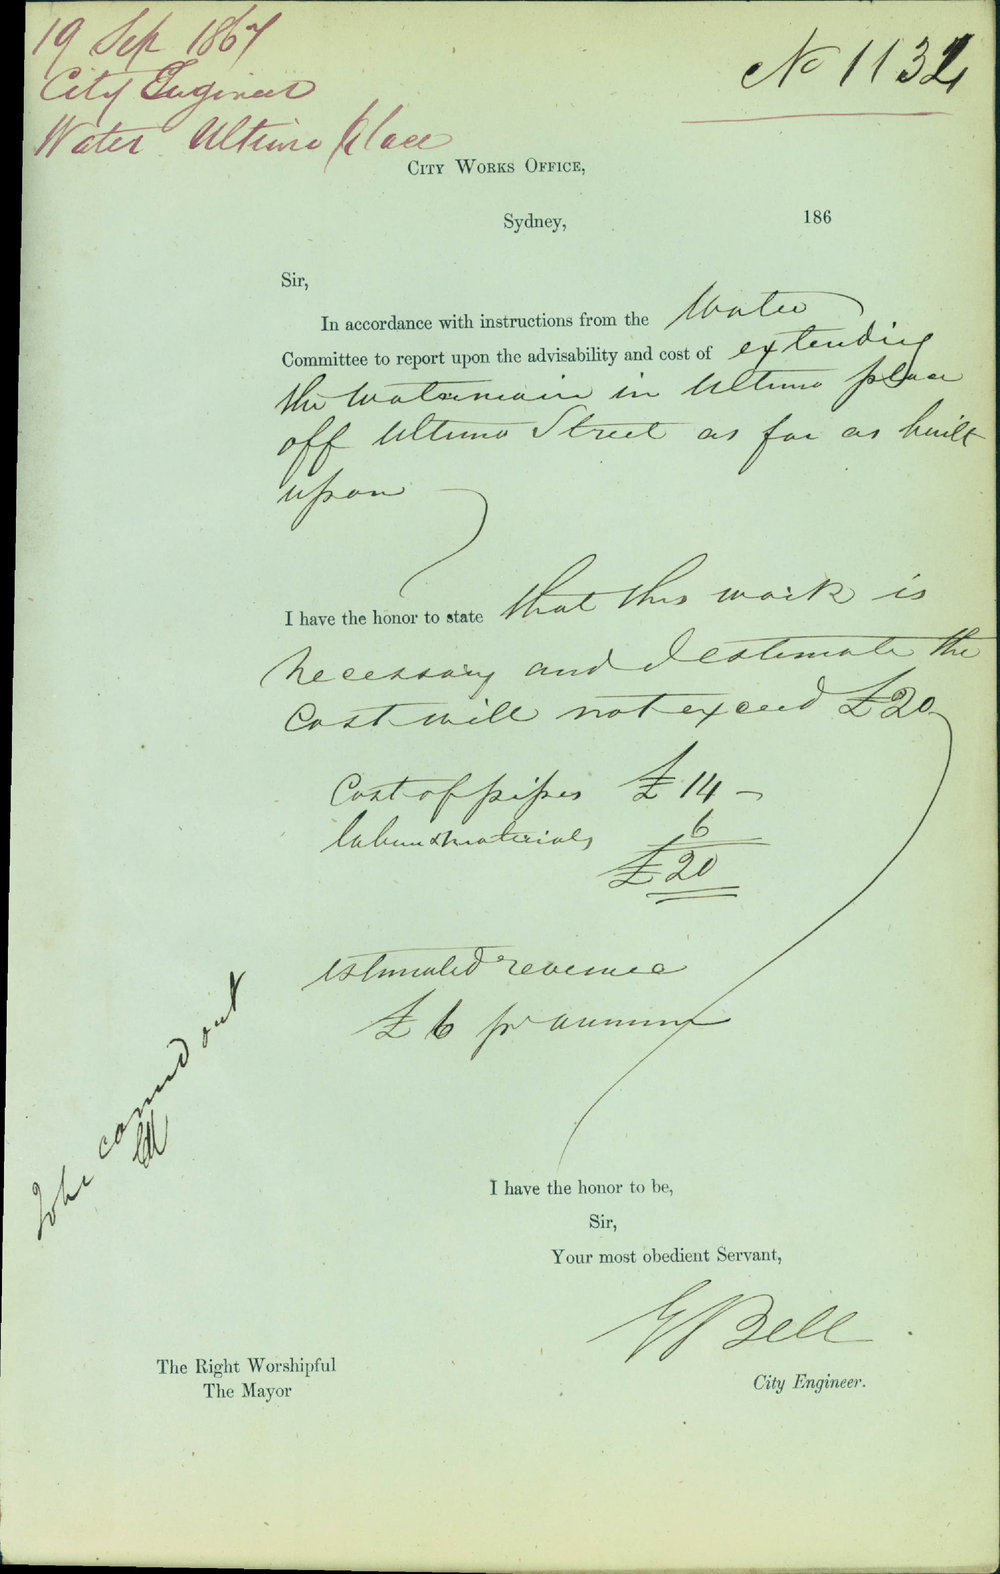 19 Sep 1867
City Engineer
Water Ultimo place
No 1132
City Works Office,
Sydney, 186
Sir,
In accordance with instructions from the Water
Committee to report upon the advisability and cost of extending
the Watermain in Ultimo place
off Ultimo Street as far as built
upon
I have the honor to state that this work is
necessary and I estimate the
Cost will not exceed £20
Cost of pipes £14 –
labour & materials 6
£20
estimated revenue
£6 pr annum
To be carried out
I have the honor to be,
Sir,
Your most obedient Servant,
E Bell
City Engineer.
The Right Worshipful
The Mayor